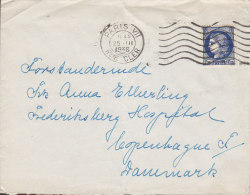 PARIS VII
25 · III
RUE CLER
Forstanderinde
Frk Anna Ellerling
Frederiksberg Hospital
Copenhague F
Danmark